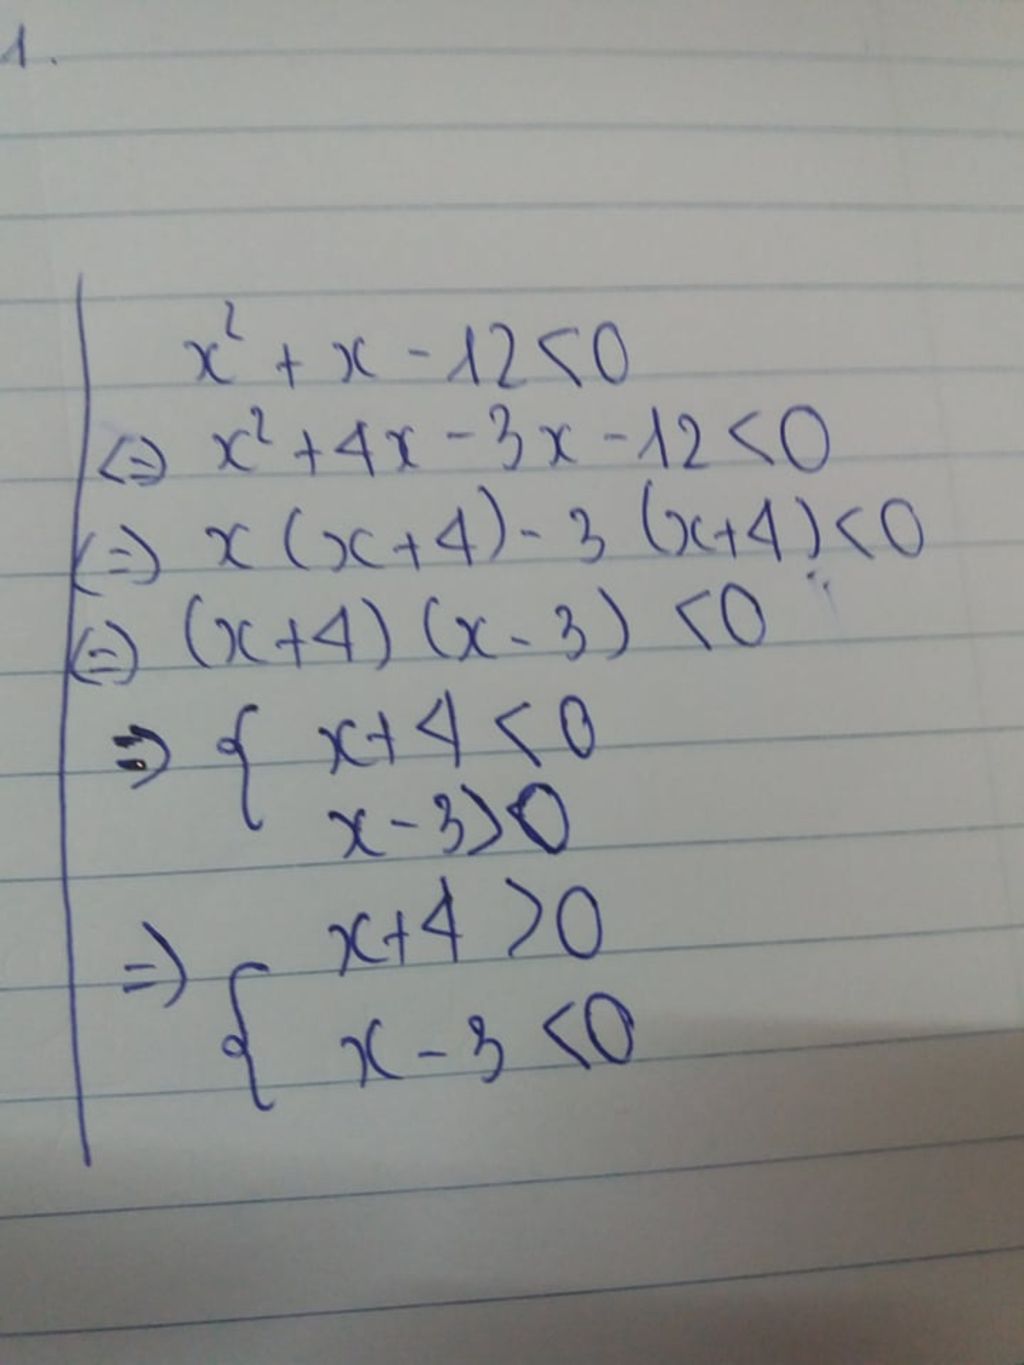 1.
x² + x - 12 < 0
<=> x² + 4x - 3x - 12 < 0
(=) x (x+4) - 3 (x+4) < 0
(=) (x+4) (x-3) < 0
=> { x+4 < 0
x-3 > 0
=> { x+4 > 0
x-3 < 0